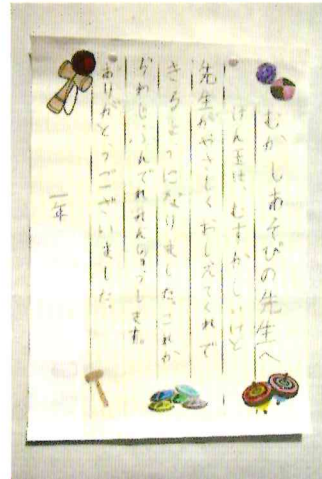 むかしあそびの先生へ
けん玉は、むずかしいけど
先生がやさしくおしえてくれで
きるようになりました。これか
らわじぶんでれんしゅうします。
ありがとうございました。
一年